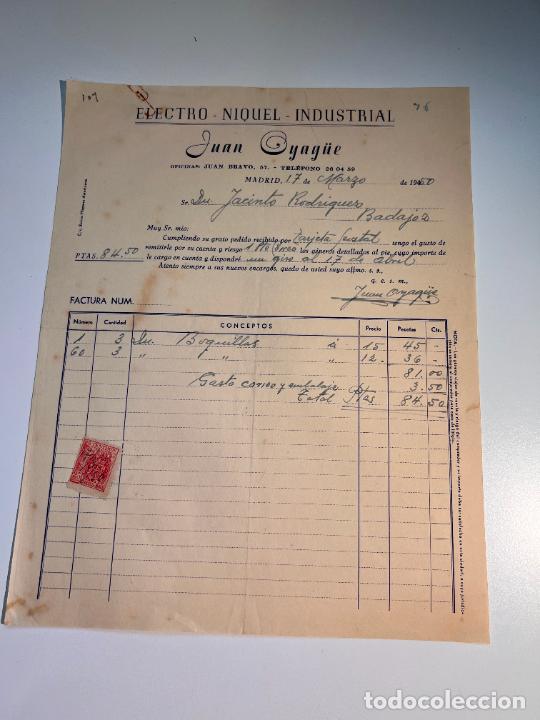 107
76
ELECTRO - NIQUEL - INDUSTRIAL
Juan Oyagüe
OFICINAS: JUAN BRAVO, 57. - TELÉFONO 26 04 39
MADRID, 17 de Marzo de 1940
Sr. Dn. Jacinto Rodriguez
Badajoz
Muy Sr. mío:
Cumpliendo su grato pedido recibido por Tarjeta Postal tengo el gusto de
remitirle por su cuenta y riesgo los géneros detallados al pie, cuyo importe
PTAS. 84.50 le cargo en cuenta y dispondré un giro al 17 de abril
Atento siempre a sus nuevos encargos, quedo de usted suyo affmo. s. s.
q. e. s. m.,
Juan Oyagüe
FACTURA NUM.
Número Cantidad CONCEPTOS Precio Pesetas Cts.
1 3 Dn. Boquillas a 15 45 -
60 3 " " " 12. 36 -
81.00
Gasto correo y embalaje 3.50
Total Ptas 84.50
todocoleccion.net